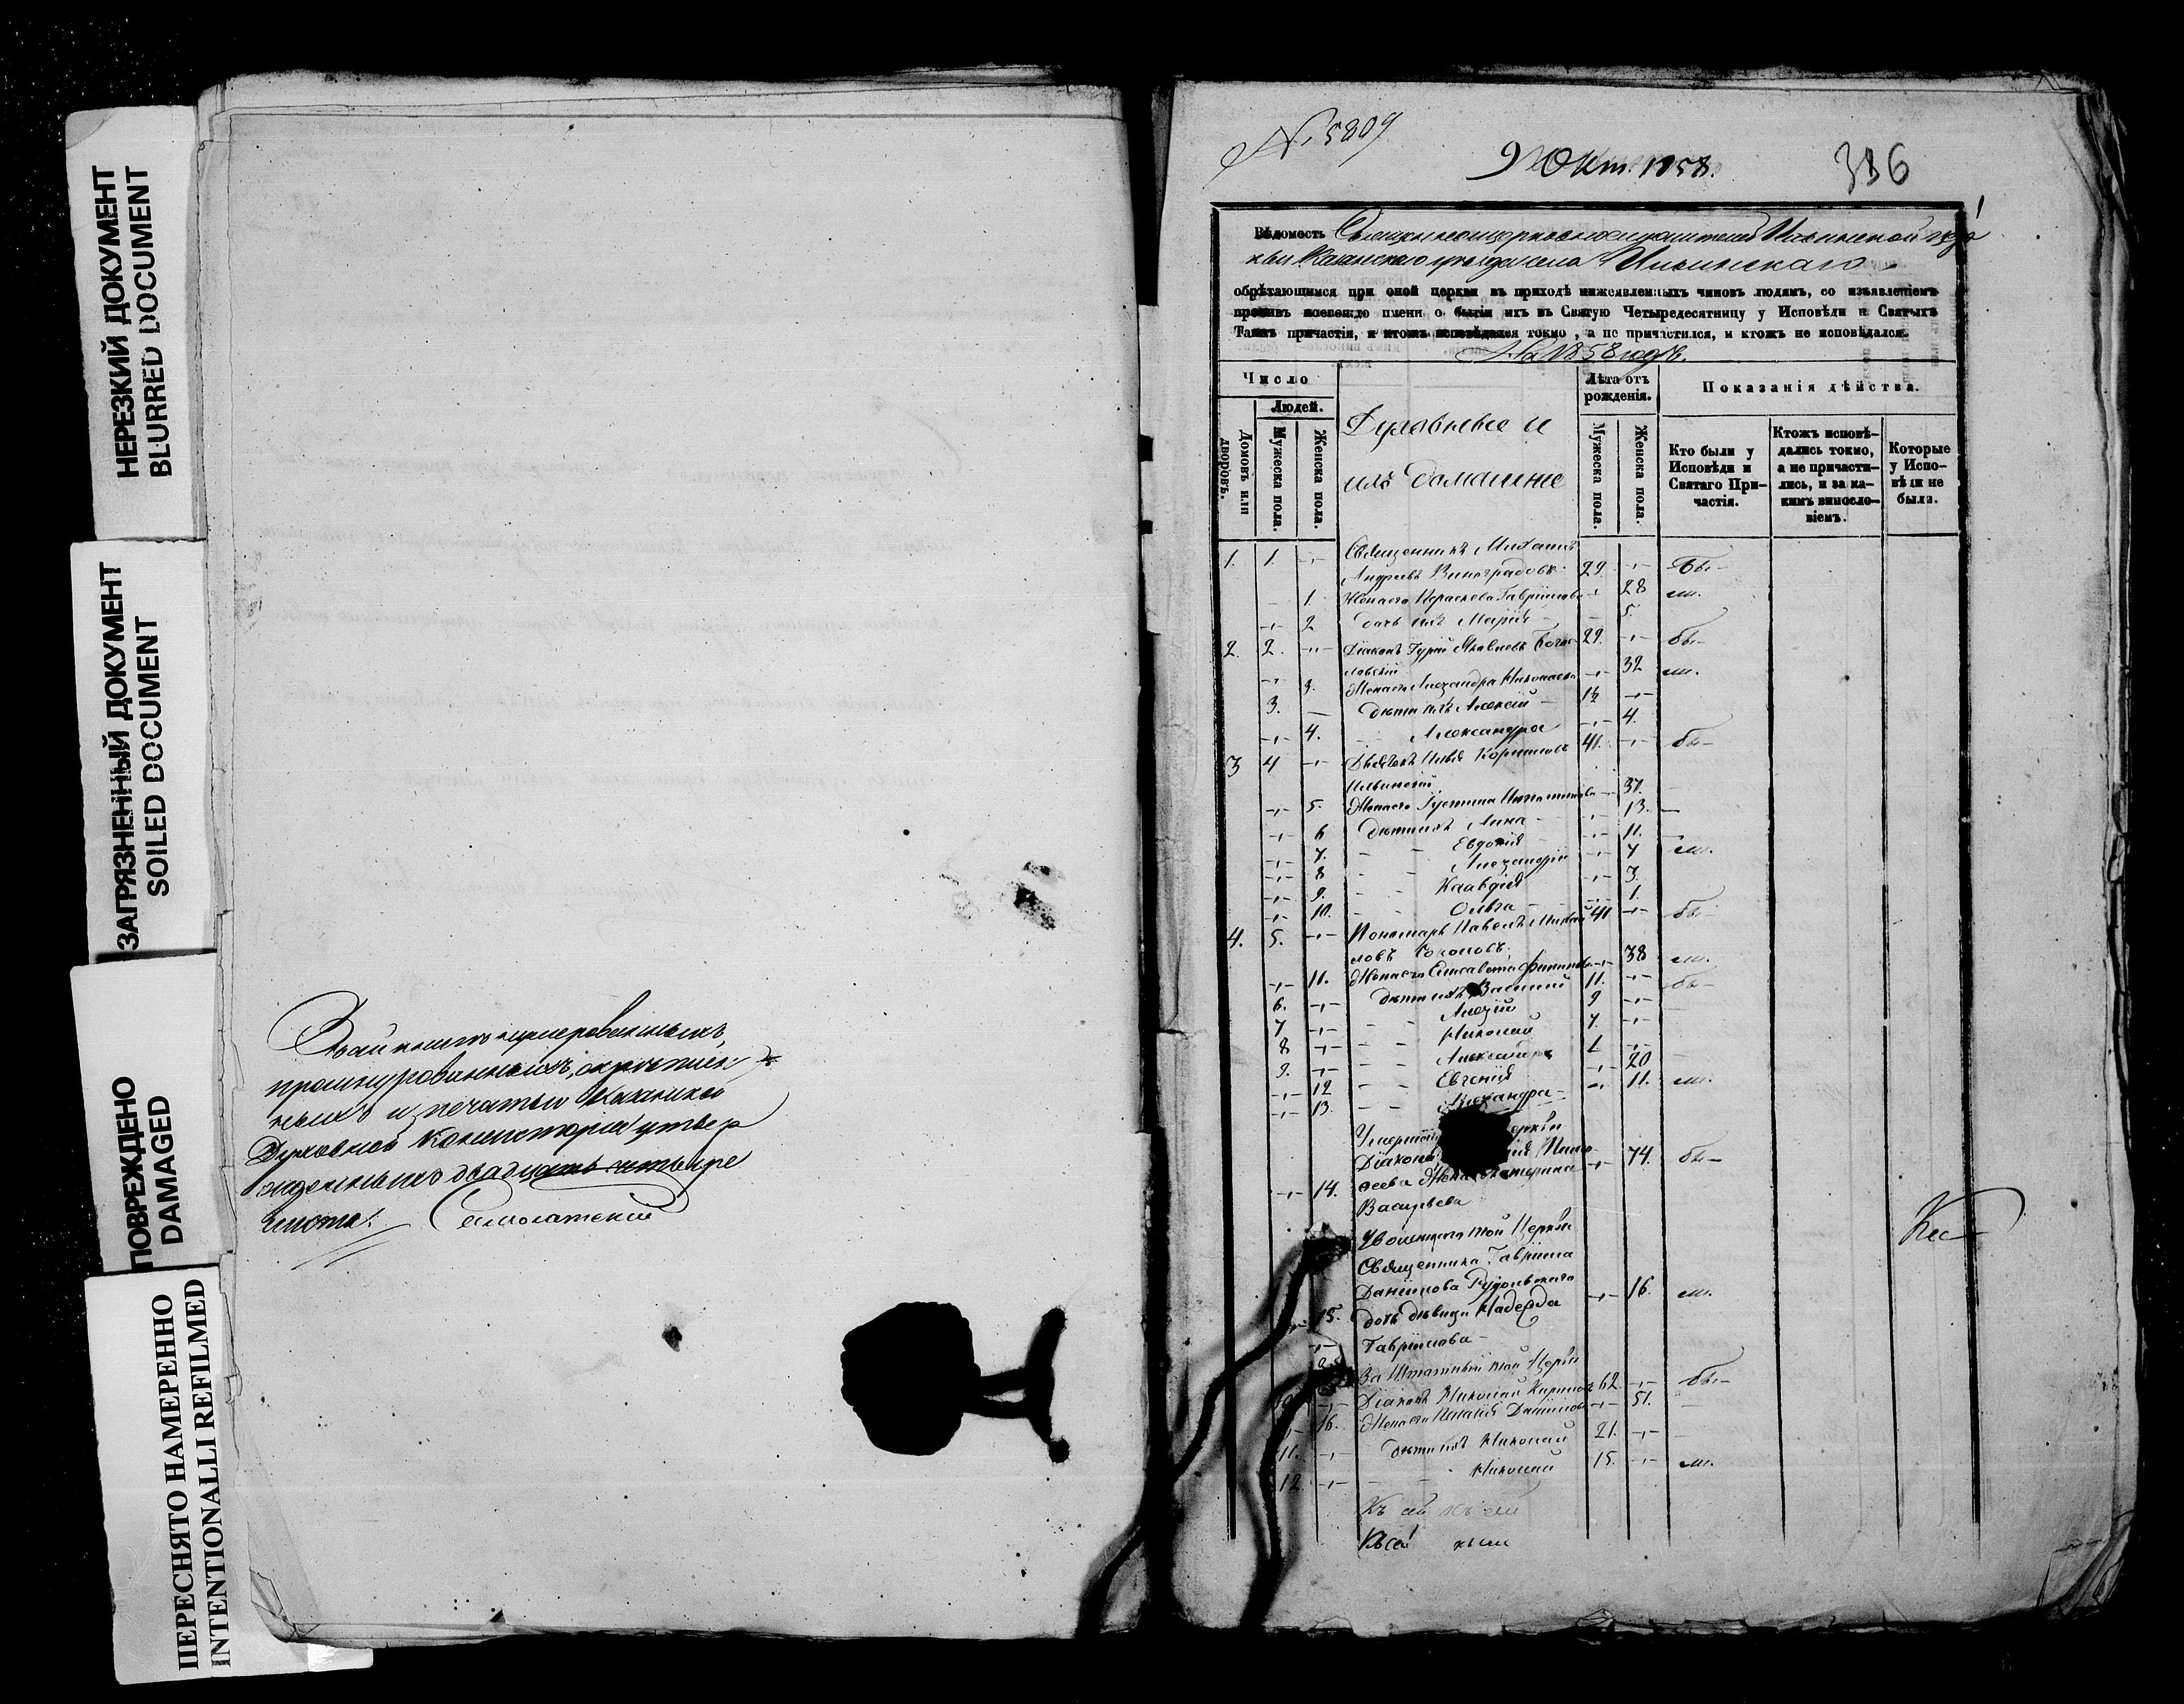 НЕРЕЗКИЙ ДОКУМЕНТ
BLURRED DOCUMENT
ЗАГРЯЗНЕННЫЙ ДОКУМЕНТ
SOILED DOCUMENT
ПОВРЕЖДЕНО
DAMAGED
ПЕРЕСНЯТО НАМЕРЕННО
INTENTIONALLI REFILMED
нумерованныхъ,
прошнурованныхъ, скрѣплен-
ныхъ и печатью Казанской
Духовной Консисторіи утвер
жденныхъ двадцать четыре
листа.
№ 5809
9 Окт. 1858.
386
Вѣдомость Ильинской цер
кви Казанскаго уѣзда села Ильинскаго
обрѣтающимся при оной церкви въ приходѣ нижеявленныхъ чиновъ людямъ, со изъявленіемъ
противъ коегождо имени о бытіи ихъ въ Святую Четыредесятницу у Исповѣди и Святыхъ
Таинъ причастія, и ктожъ исповѣдался токмо, а не причастился, и ктожъ не исповѣдался.
На 1858 годъ.
Число
Людей.
Домовъ или дворовъ.
Мужеска пола.
Женска пола.
Духовные и
ихъ домашніе
Лѣта отъ рожденія.
Мужеска пола.
Женска пола.
Показанія дѣйства.
Кто были у Исповѣди и Святаго При-частія.
Ктожъ исповѣ-дались токмо, а не причасти-лись, и за ка-кимъ винosло-віемъ.
Которые у Испо-вѣди не были.
1. 1. Священникъ Михаилъ
Андреевъ Виноградовъ 29. бы-
1. Жена его Параскева Гавріилова 28 ли.
2 дочь ихъ Марія 5.
2. 2. Діаконъ Гурій Яковлевъ Бого- 29. бы-
ловскій
3. Жена его Александра Николаева 32 ли.
3. дѣти ихъ Алексій
4. Александра 4.
3 4 Дьячекъ Илья Корниловъ 41. бы-
Ильинскій
5. Жена его Іустина 37.
6 дѣти ихъ Анна 13.
7. Евдокія 11.
8 Александра 7 ли.
9. Клавдія 3.
10. Ольга 1.
4. 5. Пономарь Павелъ Михай 41 бы-
ловъ Соколовъ.
11. Жена его Елисавета Филиппова 38 ли.
6. дѣти ихъ Василій 11. бы-
7 9
8 Николай 7.
9. Александръ 1
12 Евгенія 20
13. Александра 11. ли.
Діакона
14. Жена Екатерина 74. бы-
Васильева
той Церкви
Священника Гавріила
Даніилова Рудольскаго
15. дочь дѣвица Надежда 16. ли.
Гавріилова
Заштатный той Церкви
Діаконъ Николай 62 бы-
16. Жена его Наталія Даніилова 51.
11. дѣти ихъ Николай 21.
12. Николай 15. ли.